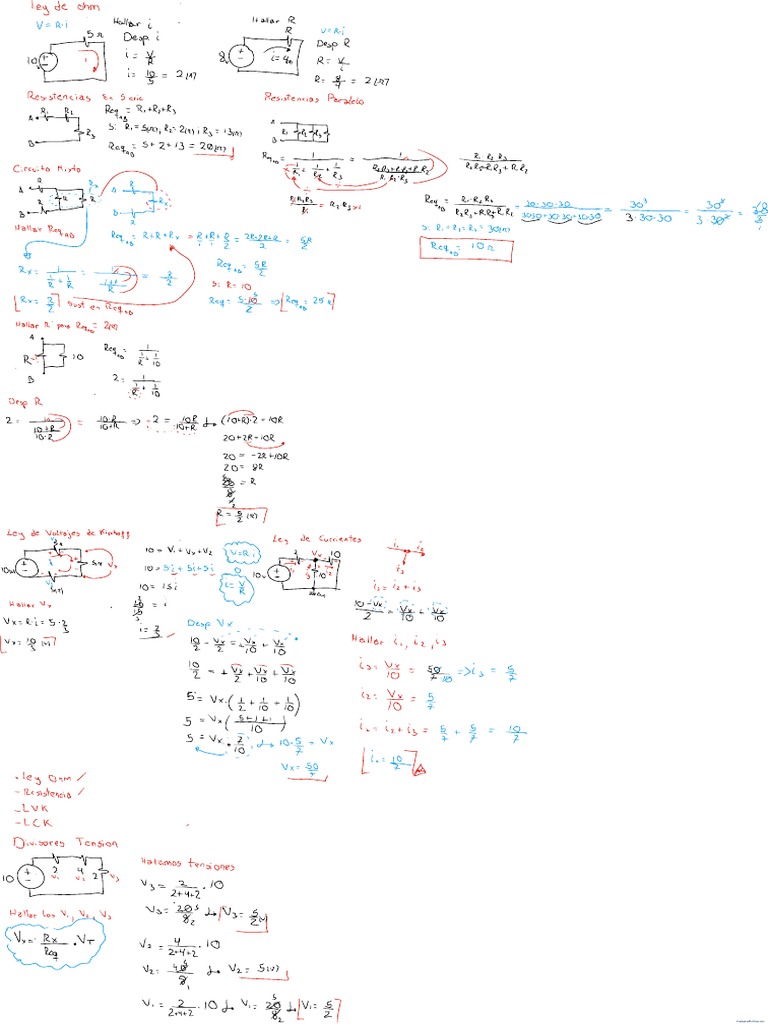 Ley de ohm
V = R·i
Hallar i
5Ω
Desp. i
10
i = V/R
i = 10/5 = 2
Hallar R
R
V=R·i
Desp R
i=4
R = V/i
Resistencias En Serie
R1 R2 R3
A
B
Req AB = R1+R2+R3
Si R1 = 5(Ω), R2 = 2(Ω), R3 = 13(Ω)
Req AB = 5+2+13 = 20(Ω)
Resistencias Paralelo
A
B
R1 R2 R3
Req AB = 1/(1/R1 + 1/R2 + 1/R3)
Req AB = 30·30·30/(30·30+30·30+30·30) = 30³/(3·30·30) = 30³/(3·30²)
Si R1 = R2 = R3 = 30(Ω)
Req AB = 10Ω
Circuito Mixto
A
B
R
Rx
Hallar Req AB
Req AB = R+R+Rx = R+R+R/2 = (2R+2R+R)/2 = 5R/2
Rx = 1/(1/R + 1/R) = 1/((1+1)/R) = R/2
Req AB = 5R/2
Si R = 10
Rx = R/2 Sust en Req AB
Req = 5·10/2 => Req AB = 25
Hallar R para Req AB = 2(Ω)
A
R
10
B
Req AB = 1/(1/R + 1/10)
2 = 1/(1/R + 1/10)
Desp R
2 = 1/((10+R)/(10·R)) = 10·R/(10+R) => 2 = 10R/(10+R)
(10+R)·2 = 10R
20+2R = 10R
20 = -2R+10R
20 = 8R
20/8 = R
R = 5/2 (Ω)
Ley de Voltajes de Kirchoff
10 = V1+Vx+V2
10 = 5i+5i+5i
10 = 15i
10/15 = i
i = 2/3
V=R·i
i = V/R
Hallar Vx
Vx = R·i = 5·2/3
Vx = 10/3 (v)
Ley de Corrientes
i1 = i2+i3
(10-Vx)/2 = Vx/10 + Vx/10
Desp Vx
10/2 - Vx/2 = +Vx/10 + Vx/10
10/2 = +Vx/2 + Vx/10 + Vx/10
5 = Vx·(1/2 + 1/10 + 1/10)
5 = Vx((5+1+1)/10)
5 = Vx·7/10
10·5/7 = Vx
Vx = 50/7
Hallar i1, i2, i3
i3 = Vx/10 => i3 = 5/7
i2 = Vx/10 = 5/7
i1 = i2+i3 = 5/7 + 5/7 = 10/7
i1 = 10/7
• Ley Ohm ✓
- Resistencia ✓
- LVK
- LCK
Divisores Tension
10
2 4 2
V1 V2 V3
Hallar los V1, V2, V3
Vx = Rx/Req · VT
Hallamos tensiones
V3 = 2/(2+4+2) · 10
V3 = 20/8
V3 = 5/2 (v)
V2 = 4/(2+4+2) · 10
V2 = 40/8
V2 = 5(v)
V1 = 2/(2+4+2) · 10
V1 = 20/8
V1 = 5/2